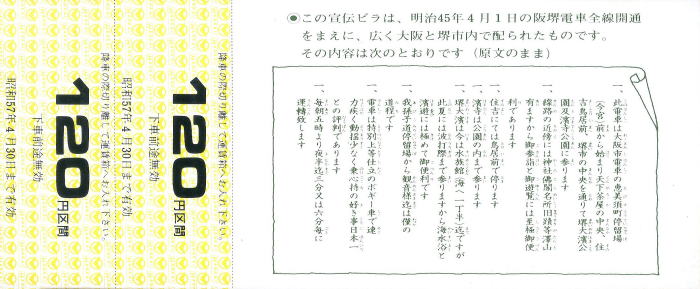 ●この宣伝ビラは、明治45年4月1日の阪堺電車全線開通
をまえに、広く大阪と堺市内で配られたものです。
その内容は次のとおりです（原文のまま）
一、此電車は大阪市電車の恵美須町停留場
（今宮）前から始まり天下茶屋の中央、住
吉鳥居前、堺市の中央を通りて堺大濱公
園及濱寺公園に参ります
一、線路の近傍には神社佛閣名所旧蹟等澤山
有ますから御参詣と御遊覧には至極御便
利であります
一、住吉にては鳥居前で停ります
一、濱寺は公園の内まで参ります
一、堺大濱は今は水族館（海へ一丁半）迄ですが
此夏には波打際まで参りますから海水浴と
濱遊には極めて御便利です
一、我孫子道停留場から観音様迄は僅の
道程です
一、電車は特別上等仕立のボギー車で速
力疾く動揺少なく乗心持の好き事日本一
との評判であります
一、毎朝五時より夜半迄三分又は六分毎に
運轉致します
降車の際切り離して運賃箱へお入れ下さい。
120円区間
下車前途無効
昭和57年4月30日まで有効
降車の際切り離して運賃箱へお入れ下さい。
120円区間
下車前途無効
昭和57年4月30日まで有効